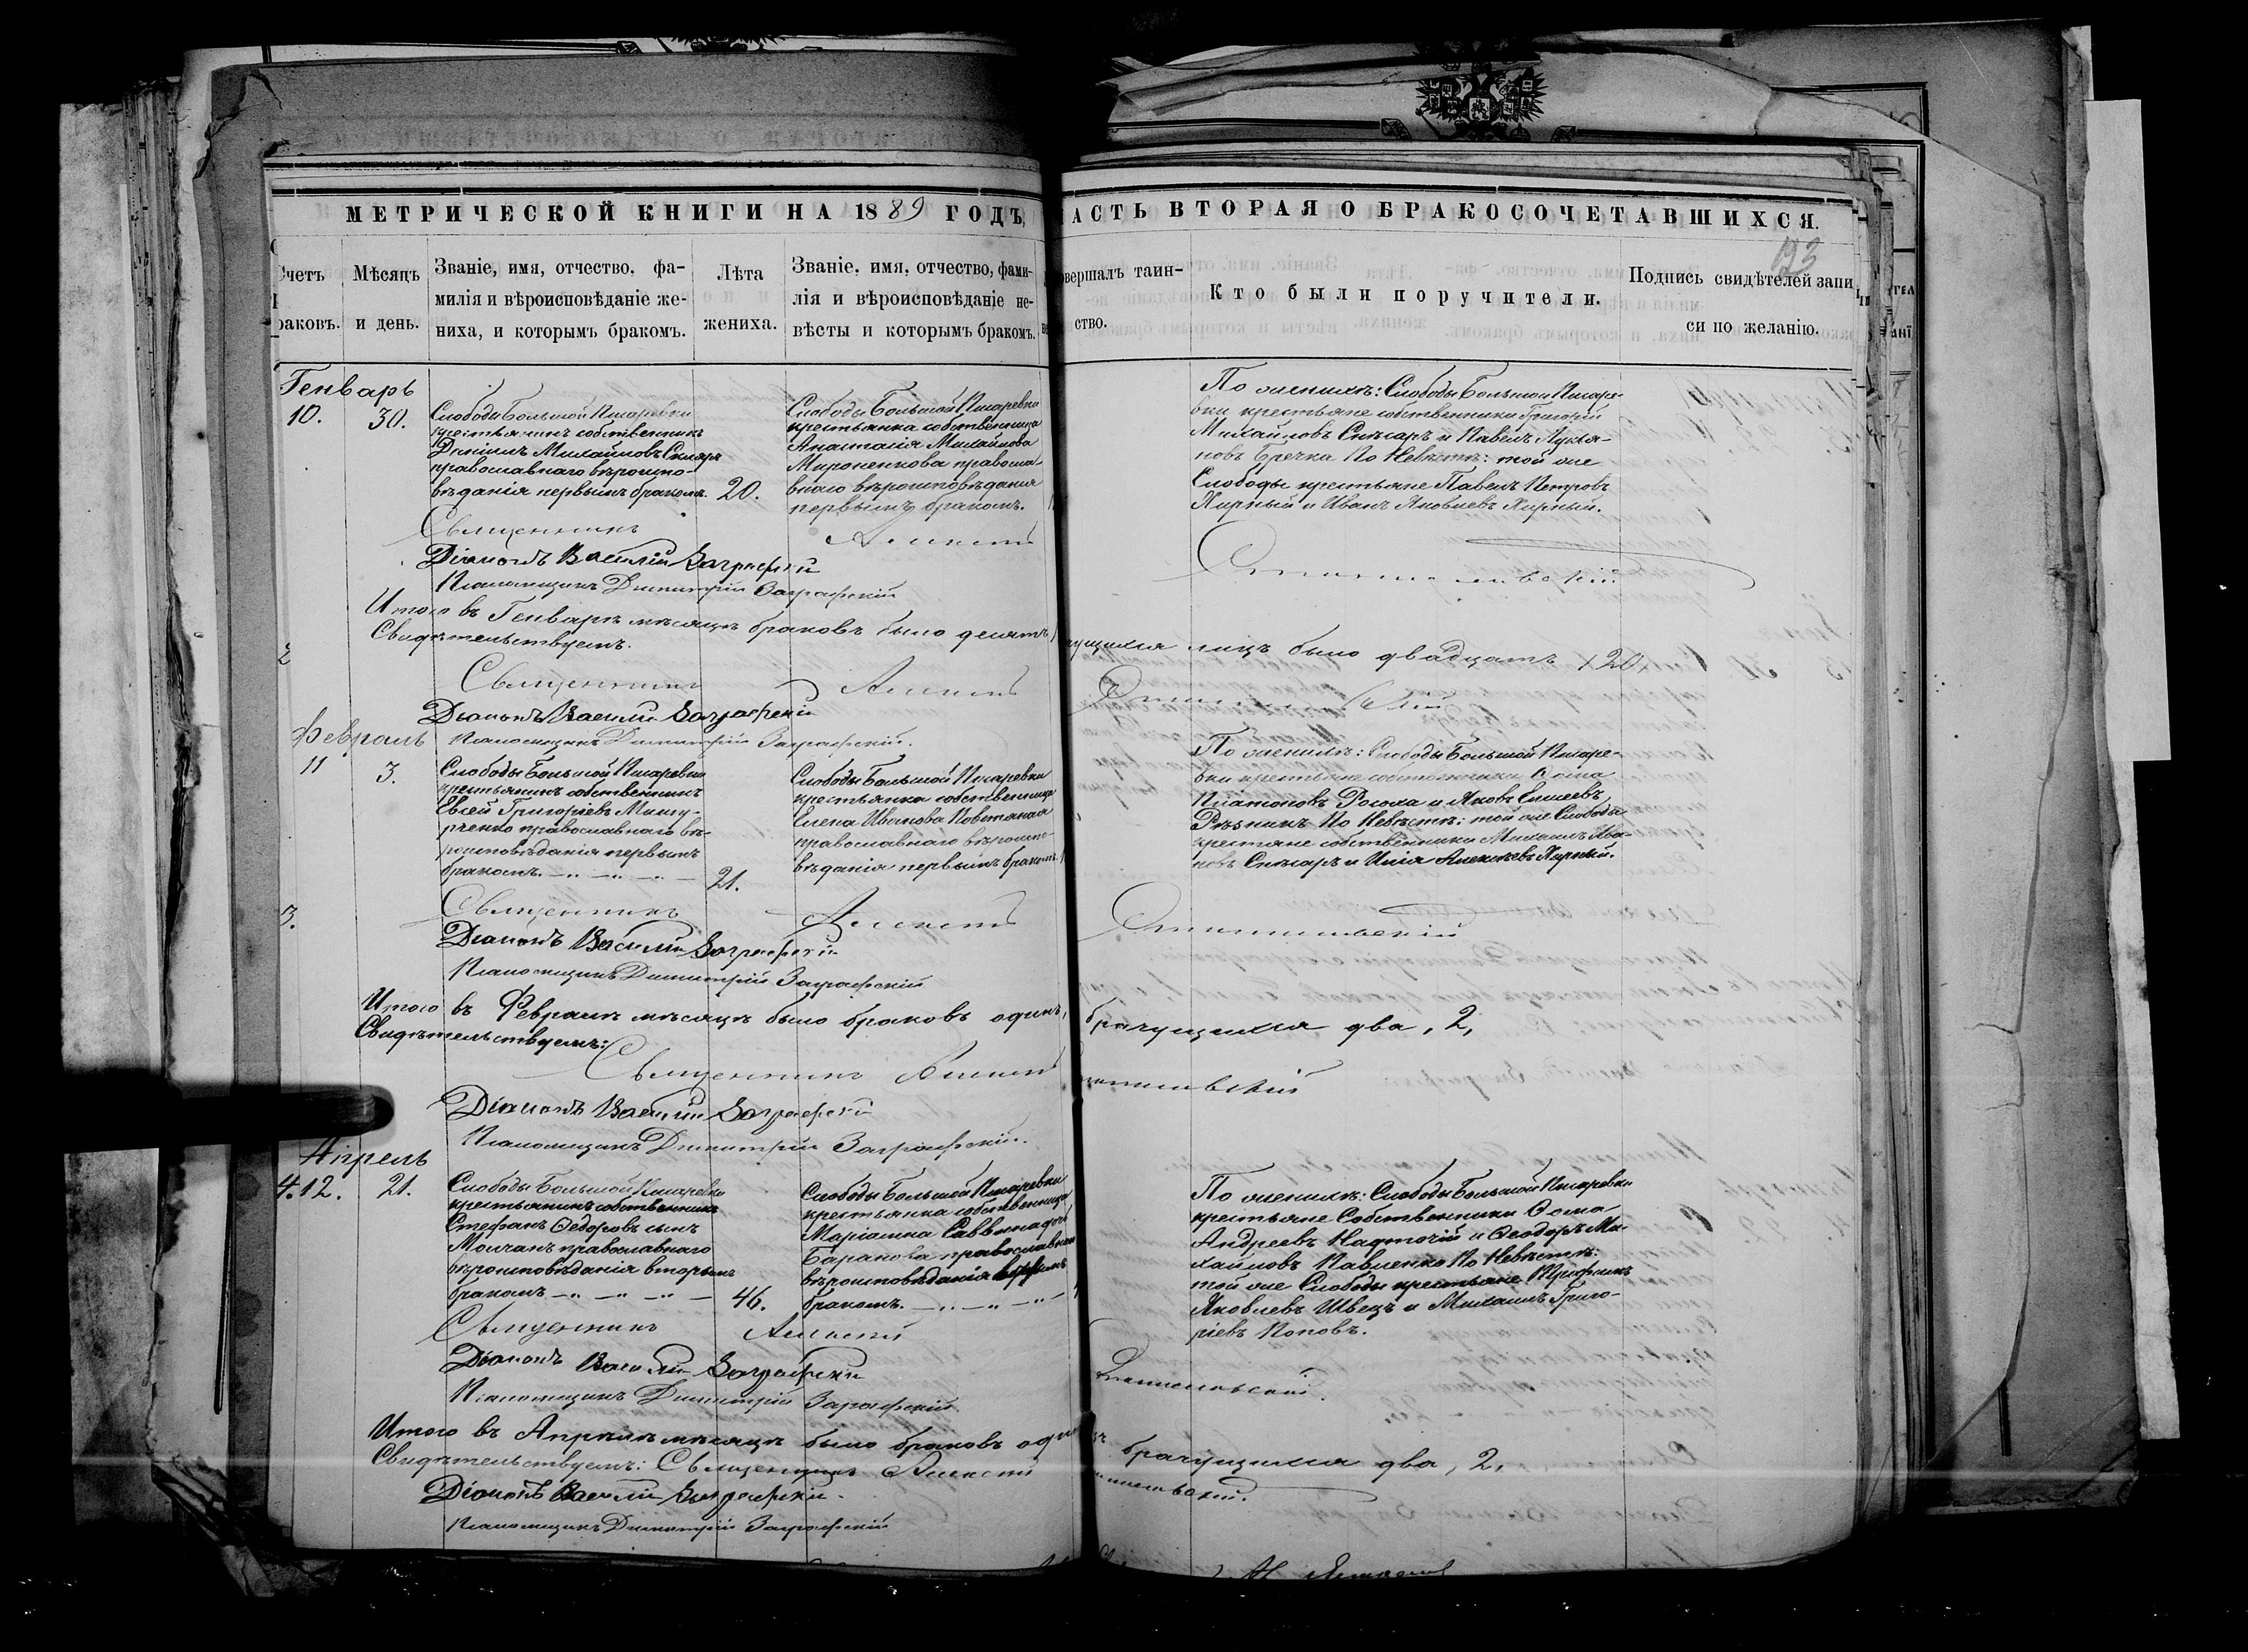 МЕТРИЧЕСКОЙ КНИГИ НА 1889 ГОДЪ,
АСТЬ ВТОРАЯ О БРАКОСОЧЕТАВШИХСЯ.
193
Счетъ
раковъ.
Мѣсяцъ
и день.
Званіе, имя, отчество, фа-
милія и вѣроисповѣданіе же-
ниха, и которымъ бракомъ.
Лѣта
жениха.
Званіе, имя, отчество, фами-
лія и вѣроисповѣданіе не-
вѣсты и которымъ бракомъ.
овершалъ таин-
ство.
Кто были поручители.
Подпись свидѣтелей запи
си по желанію.
Генварь
10.
30.
Слободы Большой Писаревки
крестьянинъ собственникъ
Даніилъ Михайловъ Снѣсарь
православнаго вѣроиспо-
вѣданія первымъ бракомъ.
20.
Слободы Большой Писаревки
крестьянка собственница
Анастасія Михайлова
Мироненкова правосла-
внаго вѣроисповѣданія
первымъ бракомъ.
По женихѣ: Слободы Большой Писаре-
вки крестьяне собственники Григорій
Михайловъ Снѣсарь и Павелъ Лукья-
новъ Гречка По Невѣстѣ: той же
Слободы крестьяне Павелъ Петровъ
Жирный и Иванъ Яковлевъ Жирный.
Священникъ Алексій
Діаконъ Василій Заграфскій
Псаломщикъ Димитрій Заграфскій
Итого въ Генварѣ мѣсяцѣ браковъ было десять
ущихся лицъ было двадцать, 20,
Свидѣтельствуемъ.
2
Священникъ Алексій
Діаконъ Василій Заграфскій
Псаломщикъ Димитрій Заграфскій.
Февраль
11
3.
Слободы Большой Писаревки
крестьянинъ собственникъ
Евсей Григорьевъ
православнаго вѣ-
роисповѣданія первымъ
бракомъ.
21.
Слободы Большой Писаревки
крестьянка собственница
Елена Иванова Повстяная
православнаго вѣроиспо-
вѣданія первымъ бракомъ.
По женихѣ: Слободы Большой Писаре-
вки крестьяне собственники Ѳома
Платоновъ и Яковъ Елисеевъ
Рѣзникъ По Невѣстѣ: той же Слободы
крестьяне собственники Михаилъ Ива-
новъ Снѣсарь и Илія Алексѣевъ Жирный.
3.
Священникъ Алексій
Діаконъ Василій Заграфскій
Псаломщикъ Димитрій Заграфскій
Итого въ Февралѣ мѣсяцѣ было браковъ одинъ,
брачущихся два, 2,
Свидѣтельствуемъ:
Священникъ Алексій
Діаконъ Василій Заграфскій
Псаломщикъ Димитрій Заграфскій.
Апрель
4. 12.
21.
Слободы Большой Писаревки
крестьянинъ собственникъ
Стефанъ Ѳедоровъ сынъ
Молчанъ православнаго
вѣроисповѣданія вторымъ
бракомъ
46.
Слободы Большой Писаревки
крестьянка собственница
Маріамна Саввина дочь
Баранова православнаго
вѣроисповѣданія
бракомъ.
По женихѣ: Слободы Большой Писаревки
крестьяне Собственники Ѳома
Андреевъ Надточій и Ѳеодоръ Ми-
хайловъ Павленко По Невѣстѣ:
той же Слободы крестьяне Трифонъ
Яковлевъ Швецъ и Михаилъ Григо-
ріевъ Поповъ.
Священникъ Алексій
Діаконъ Василій Заграфскій
Псаломщикъ Димитрій Заграфскій
Итого въ Апрѣлѣ мѣсяцѣ было браковъ одинъ
брачущихся два, 2,
Свидѣтельствуемъ: Священникъ Алексій
Діаконъ Василій Заграфскій.
Псаломщикъ Димитрій Заграфскій